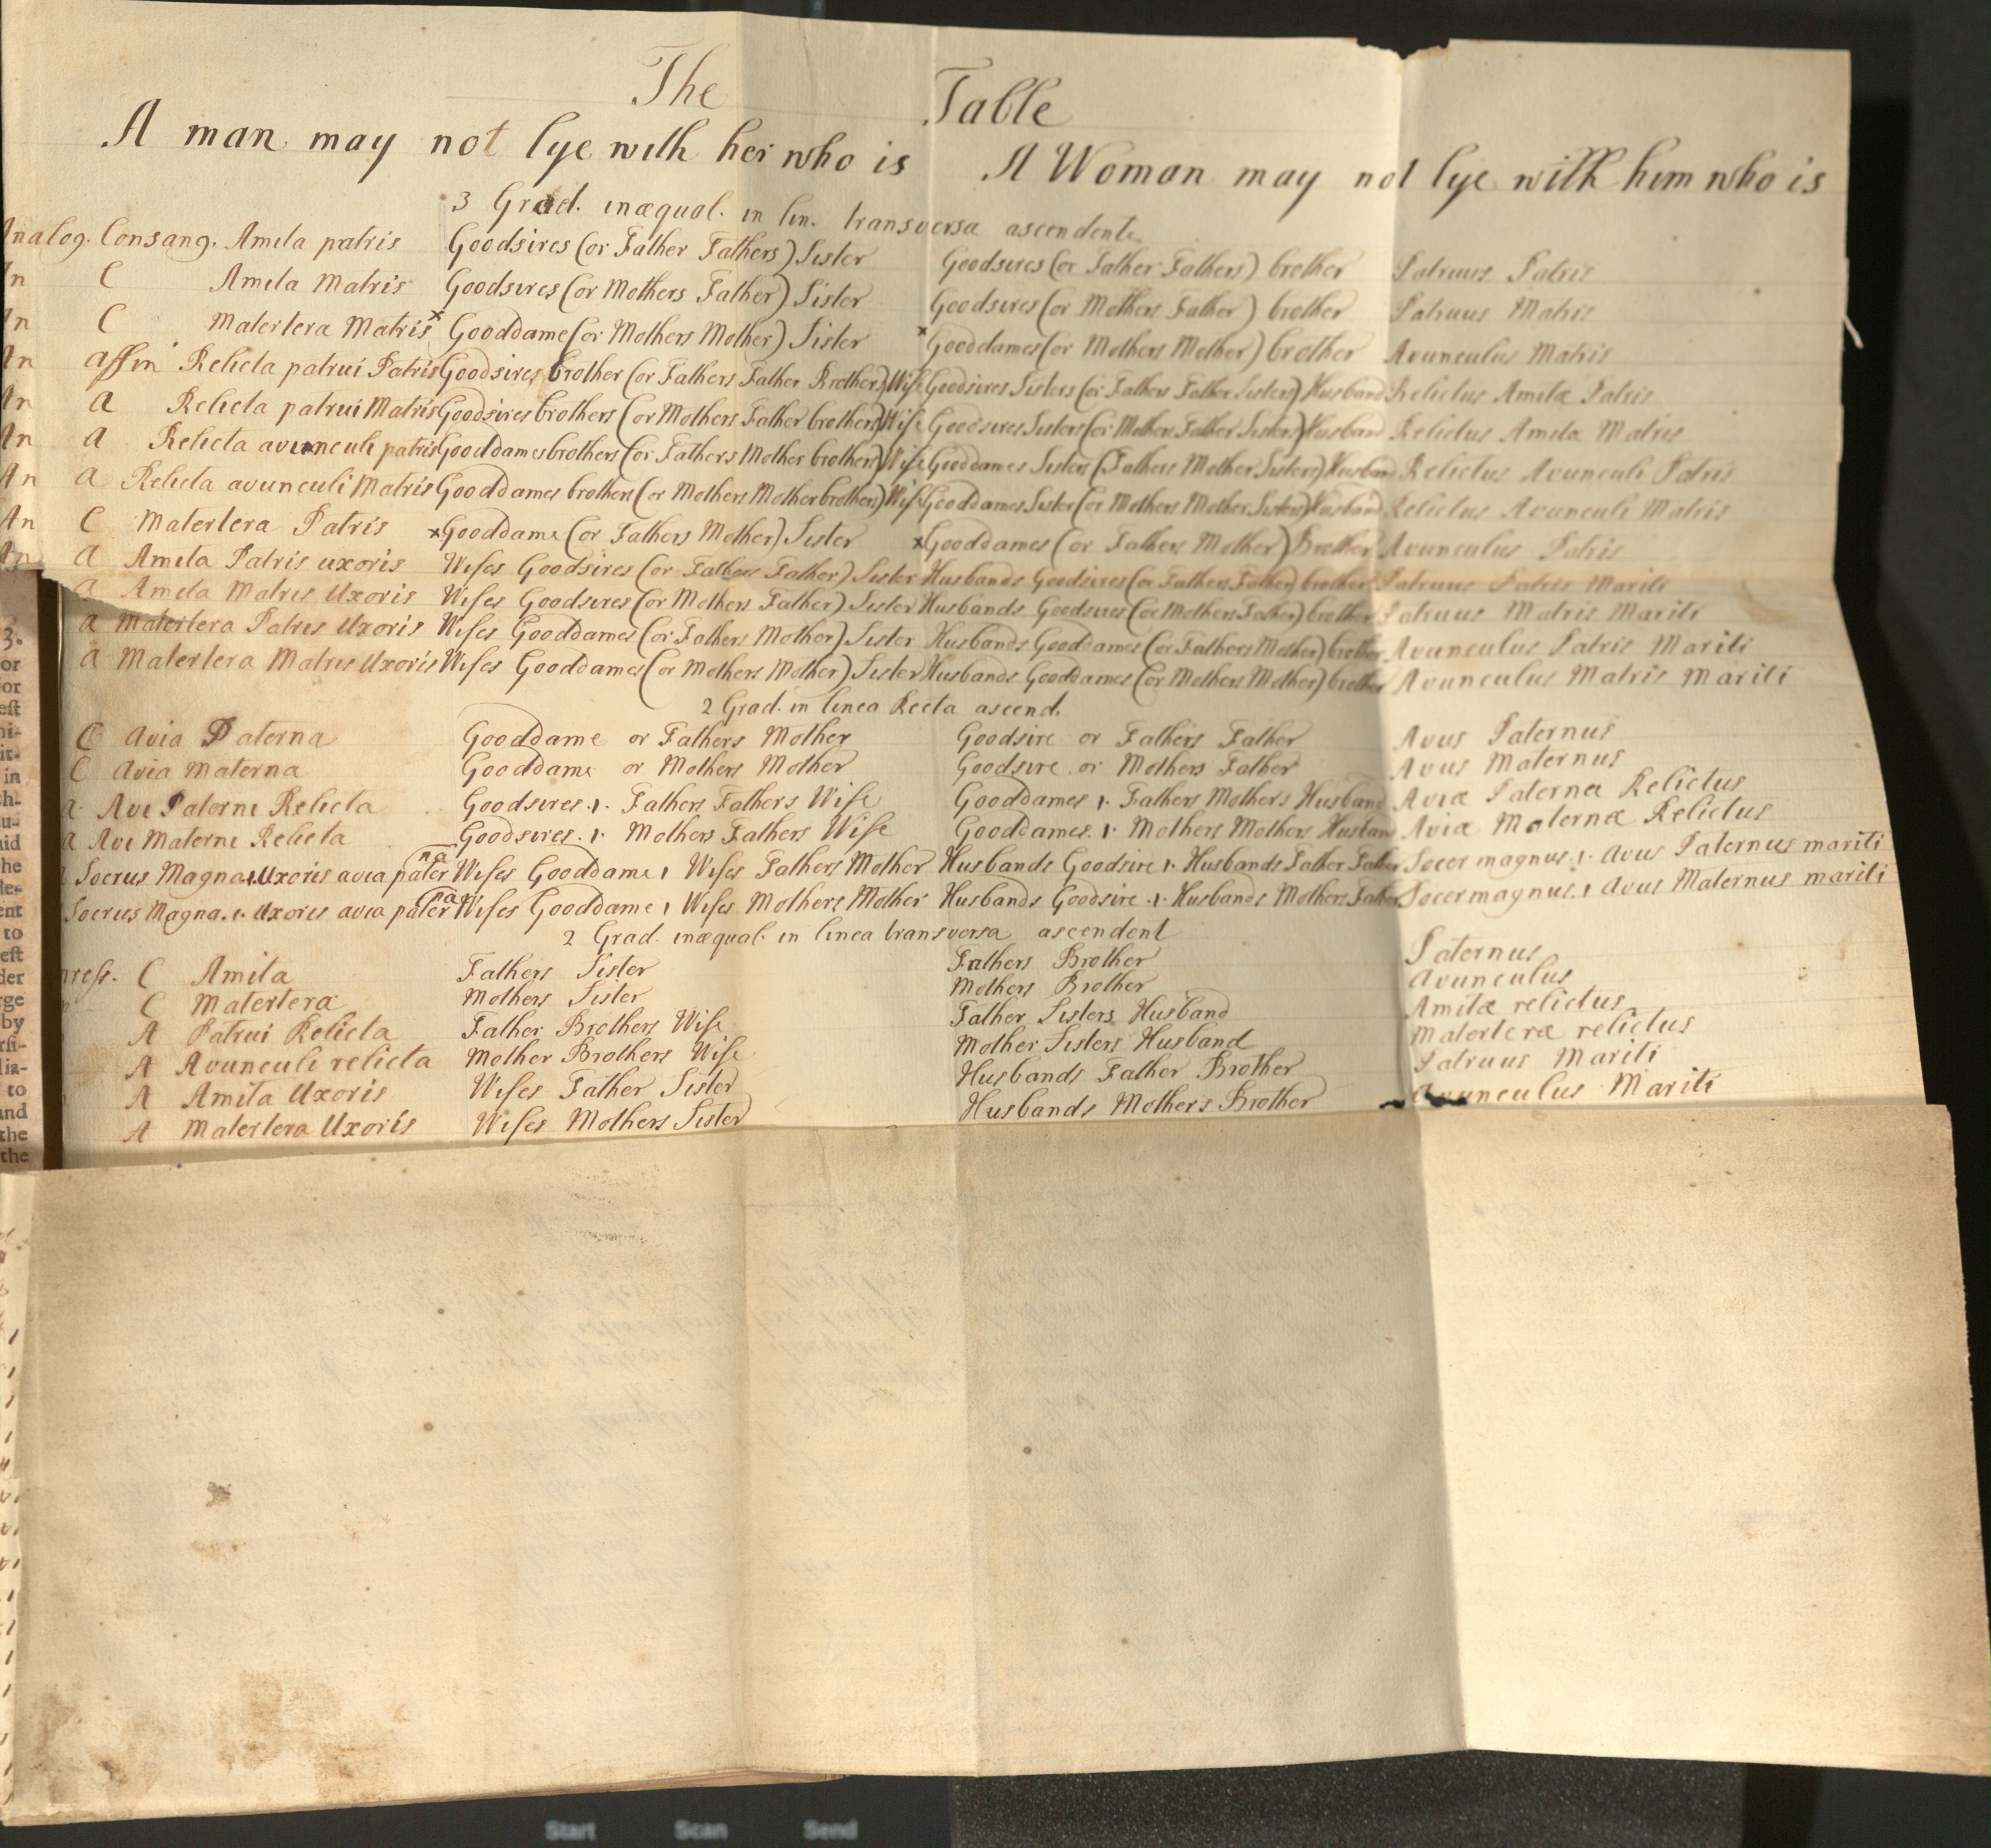 The Table
A man may not lye with her who is A Woman may not lye with him who is
3 Grad. inæqual. in lin. transversa ascendente
Analog. Consang. Amita patris Goodsires (or Father Fathers) Sister Goodsires (or Father Fathers) brother Patruus Patris
An C Amita Matris Goodsires (or Mothers Father) Sister Goodsires (or Mothers Father) brother Patruus Matris
An C Matertera Matris x Gooddame (or Mothers Mother) Sister x Gooddames (or Mothers Mother) brother Avunculus Matris
An affin Relicta patrui Patris Goodsires brother (or Fathers Father Brother) Wife Goodsires Sisters (or Fathers Father Sisters) Husband Relictus Amitæ Patris
An a Relicta patrui Matris Goodsires brothers (or Mothers Father brothers) Wife Goodsires Sisters (or Mothers Father Sisters) Husband Relictus Amitæ Matris
An a Relicta avunculi patris Gooddames brothers (or Fathers Mother brothers) Wife Gooddames Sisters (Fathers Mother Sisters) Husband Relictus Avunculi Patris
An a Relicta avunculi Matris Gooddames brothers (or Mothers Mother brothers) Wife Gooddames Sister (or Mothers Mother Sisters) Husband Relictus Avunculi Matris
An C Matertera Patris x Gooddame (or Fathers Mother) Sister x Gooddames (or Fathers Mother) Brother Avunculus Patris
An a Amita Patris uxoris Wifes Goodsires (or Fathers Father) Sister Husbands Goodsires (or Fathers Father) brother Patruus Patris Mariti
a Amita Matris Uxoris Wifes Goodsires (or Mothers Father) Sister Husbands Goodsires (or Mothers Father) brother Patruus Matris Mariti
a Matertera Patris Uxoris Wifes Gooddames (or Fathers Mother) Sister Husbands Gooddames (or Fathers Mother) brother Avunculus Patris Mariti
a Matertera Matris Uxoris Wifes Gooddames (or Mothers Mother) Sister Husbands Gooddames (or Mothers Mother) brother Avunculus Matris Mariti
2 Grad. in linea Recta ascend.
C Avia Paterna Gooddame or Fathers Mother Goodsire or Fathers Father Avus Paternus
C Avia Materna Gooddame or Mothers Mother Goodsire or Mothers Father Avus Maternus
a Avi Paterni Relicta Goodsires .1. Fathers Fathers Wife Gooddames 1. Fathers Mothers Husband Aviæ Paternæ Relictus
a Avi Materni Relicta Goodsires .1. Mothers Fathers Wife Gooddames. 1. Mothers Mothers Husband Aviæ Maternæ Relictus
Socrus Magna.1.Uxoris avia paterna Wifes Gooddame 1 Wifes Fathers Mother Husbands Goodsire 1. Husbands Father Father Socer magnus.1. Avus Paternus mariti
Socrus Magna.1. Uxoris avia paterna Wifes Gooddame 1 Wifes Mothers Mother Husbands Goodsire .1. Husbands Mothers Father Socer magnus.1 Avus Maternus mariti
2 Grad. inæqual. in linea transversa ascendent
C Amita Fathers Sister Fathers Brother Paternus
C Matertera Mothers Sister Mothers Brother Avunculus
A Patrui Relicta Father Brothers Wife Father Sisters Husband Amitæ relictus
A Avunculi relicta Mother Brothers Wife Mother Sisters Husband Materteræ relictus
A Amita Uxoris Wifes Father Sister Husbands Father Brother Patruus Mariti
A Matertera Uxoris Wifes Mothers Sister Husbands Mothers Brother Avunculus Mariti
3.
or
or
est
in
aid
he
ent
to
est
der
rge
by
to
and
the
the
Start Scan Send